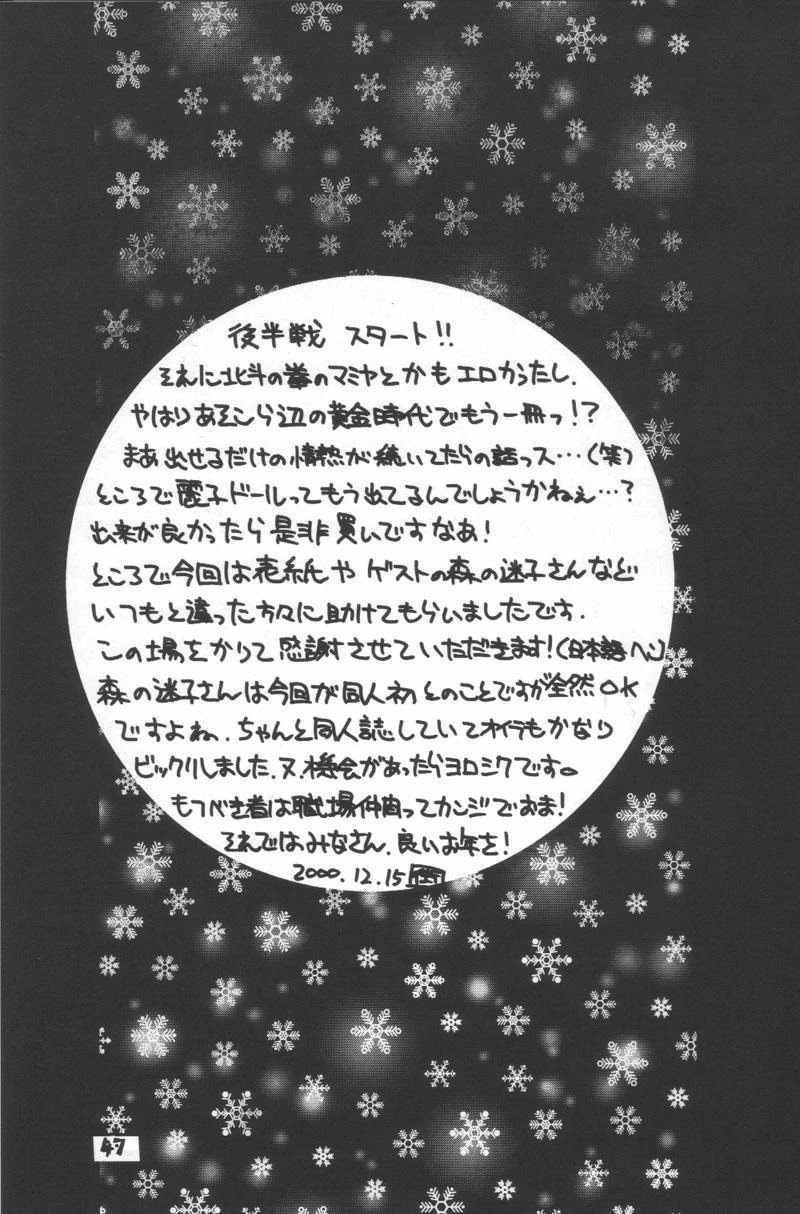 後半戦 スタート!!
それに北斗の拳のマミヤとかもエロかったし、
やはりあそこら辺の黄金時代でもう一冊っ!?
まあ出せるだけの情熱が続いてたらの話っス…(笑)
ところで麗子ドールってもう出てるんでしょうかねぇ…?
出来が良かったら是非買いですなあ!
ところで今回は表紙やゲストの森の迷子さんなど
いつもと違った方々に助けてもらいましたです.
この場をかりて感謝させていただきます!(日本語ヘン)
森の迷子さんは今回が同人初とのことですが全然OK
ですよね、ちゃんと同人誌していてオイラもかなり
ビックリしました、又、機会があったらヨロシクです。
もつべき者は職場仲間ってカンジでおま!
それではみなさん、良いお年を!
2000.12.15
47